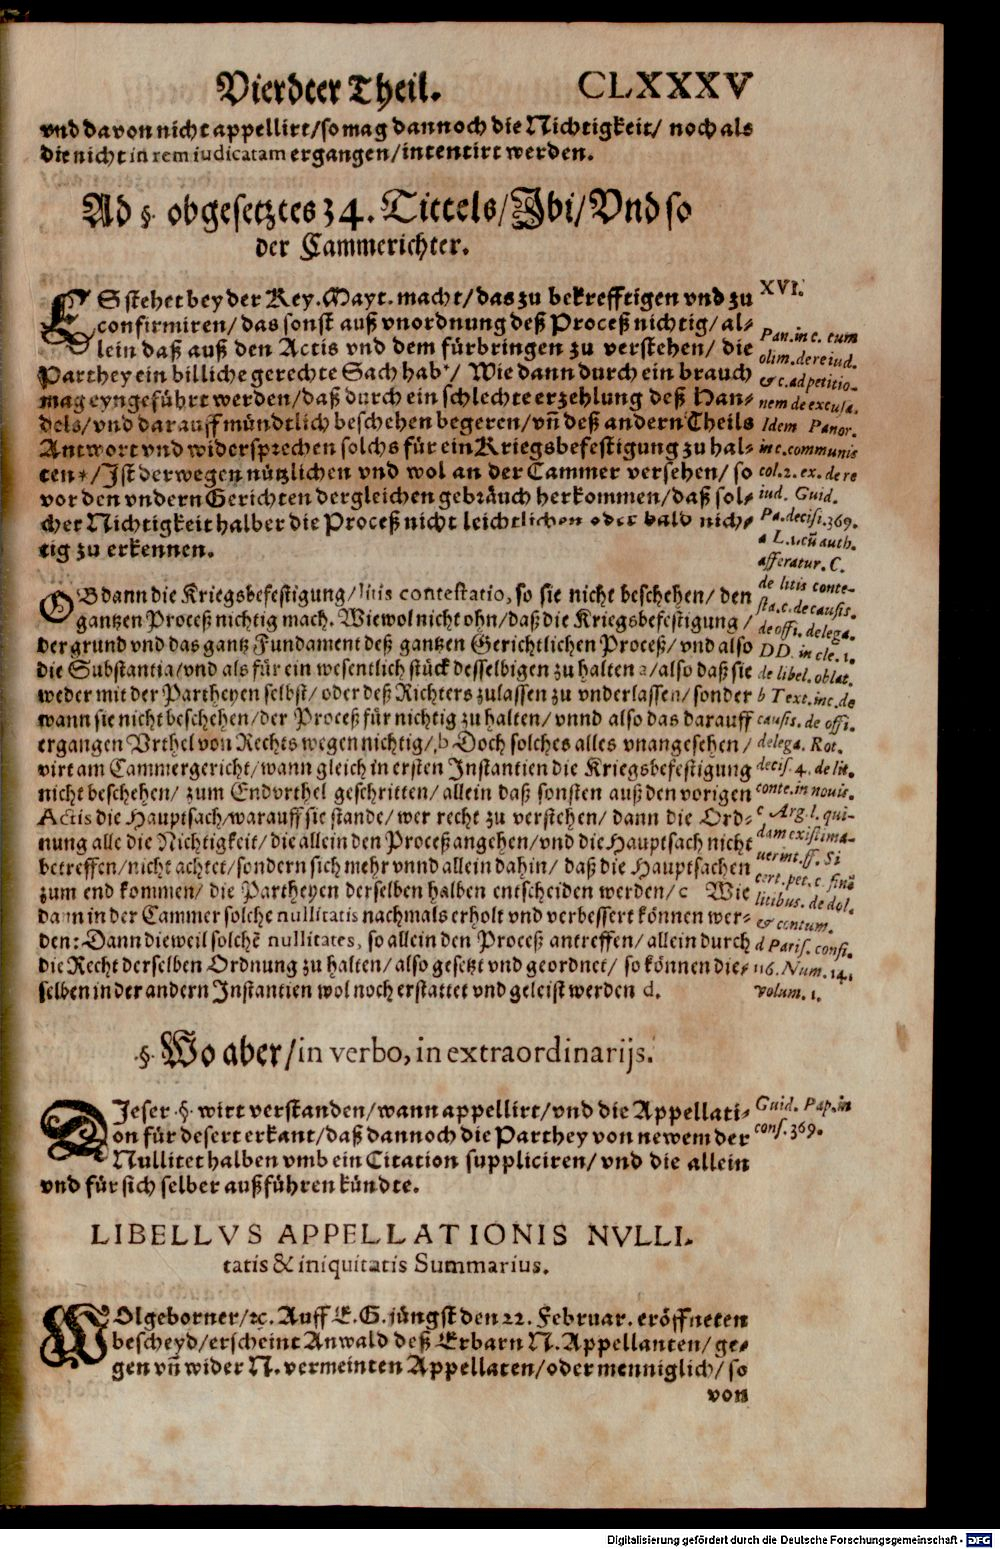 Vierdter Theil. CLXXXV
vnd davon nicht appellirt/ so mag dannoch die Nichtigkeit/ noch als
die nicht in rem iudicatam ergangen/ intentirt werden.
Ad §. obgesetztes 34. Tittels/ Ibi/ Vnd so
der Cammerichter.
ES stehet bey der Key. Mayt. macht/ das zu bekrefftigen vnd zu
confirmiren/ das sonst auß vnordnung deß Proceß nichtig/ al-
lein daß auß den Actis vnd dem fürbringen zu verstehen/ die
Parthey ein billiche gerechte Sach hab*/ Wie dann durch ein brauch
mag eyngeführt werden/ daß durch ein schlechte erzehlung deß Han-
dels/ vnd darauff mündtlich beschehen begeren/ vñ deß andern Theils
Antwort vnd widersprechen solchs für ein Kriegsbefestigung zu hal-
ten*/ Ist derwegen nützlichen vnd wol an der Cammer versehen/ so
vor den vndern Gerichten dergleichen gebräuch herkommen/ daß sol-
cher Nichtigkeit halber die Proceß nicht leichtlichen oder bald nich-
tig zu erkennen.
XVI.
Pan. in c. cum
olim. de re iud.
& c. ad petitio-
nem de excusa.
Idem Panor.
in c. communis
col. 2. ex. de re
iud. Guid.
Pa. decisi. 369.
OB dann die Kriegsbefestigung/ litis contestatio, so sie nicht beschehen/ den
gantzen Proceß nichtig mach. Wiewol nicht ohn/ daß die Kriegsbefestigung/
der grund vnd das gantz Fundament deß gantzen Gerichtlichen Proceß/ vnd also
die Substantia/ vnd als für ein wesentlich stück desselbigen zu halten a/ also daß sie
weder mit der Partheyen selbst/ oder deß Richters zulassen zu vnderlassen/ sonder
wann sie nicht beschehen/ der Proceß für nichtig zu halten/ vnnd also das darauff
ergangen Vrthel von Rechts wegen nichtig/ b Doch solches alles vnangesehen/
wirt am Cammergericht/ wann gleich in ersten Instantien die Kriegsbefestigung
nicht beschehen/ zum Endvrthel geschritten/ allein daß sonsten auß den vorigen
Actis die Hauptsach/ warauff sie stande/ wer recht zu verstehen/ dann die Ord-
nung alle die Nichtigkeit/ die allein den Proceß angehen/ vnd die Hauptsach nicht
betreffen/ nicht achtet/ sondern sich mehr vnnd allein dahin/ daß die Hauptsachen
zum end kommen/ die Partheyen derselben halben entscheiden werden/ c Wie
dann in der Cammer solche nullitatis nachmals erholt vnd verbessert können wer-
den: Dann dieweil solchẽ nullitates, so allein den Proceß antreffen/ allein durch
die Recht derselben Ordnung zu halten/ also gesetzt vnd geordnet/ so können die-
selben in der andern Instantien wol noch erstattet vnd geleist werden d.
a L. 1. cũ auth.
afferatur. C.
de litis conte-
sta. c. de causis.
de offi. delega.
DD. in cle. 1.
de libel. oblat.
b Text. in c. de
causis. de offi.
delega. Rot.
decis. 4. de lit.
conte. in nouis.
c Arg. l. qui-
dam existima-
uerint. ff. Si
cert. pet. c. finẽ
litibus. de dol.
& contum.
d Paris. consi.
116. Num. 14.
volum. 1.
§. Wo aber/ in verbo, in extraordinarijs.
DJeser §. wirt verstanden/ wann appellirt/ vnd die Appellati-
on für desert erkant/ daß dannoch die Parthey von newem der
Nullitet halben vmb ein Citation suppliciren/ vnd die allein
vnd für sich selber außführen kündte.
Guid. Pap. in
cons. 369.
LIBELLVS APPELLATIONIS NVLLI-
tatis & iniquitatis Summarius.
WOlgeborner/ ꝛc. Auff E. G. jüngst den 22. Februar. eröffneten
bescheyd/ erscheint Anwald deß Erbarn N. Appellanten/ ge-
gen vñ wider N. vermeinten Appellaten/ oder menniglich/ so
von
Digitalisierung gefördert durch die Deutsche Forschungsgemeinschaft - DFG